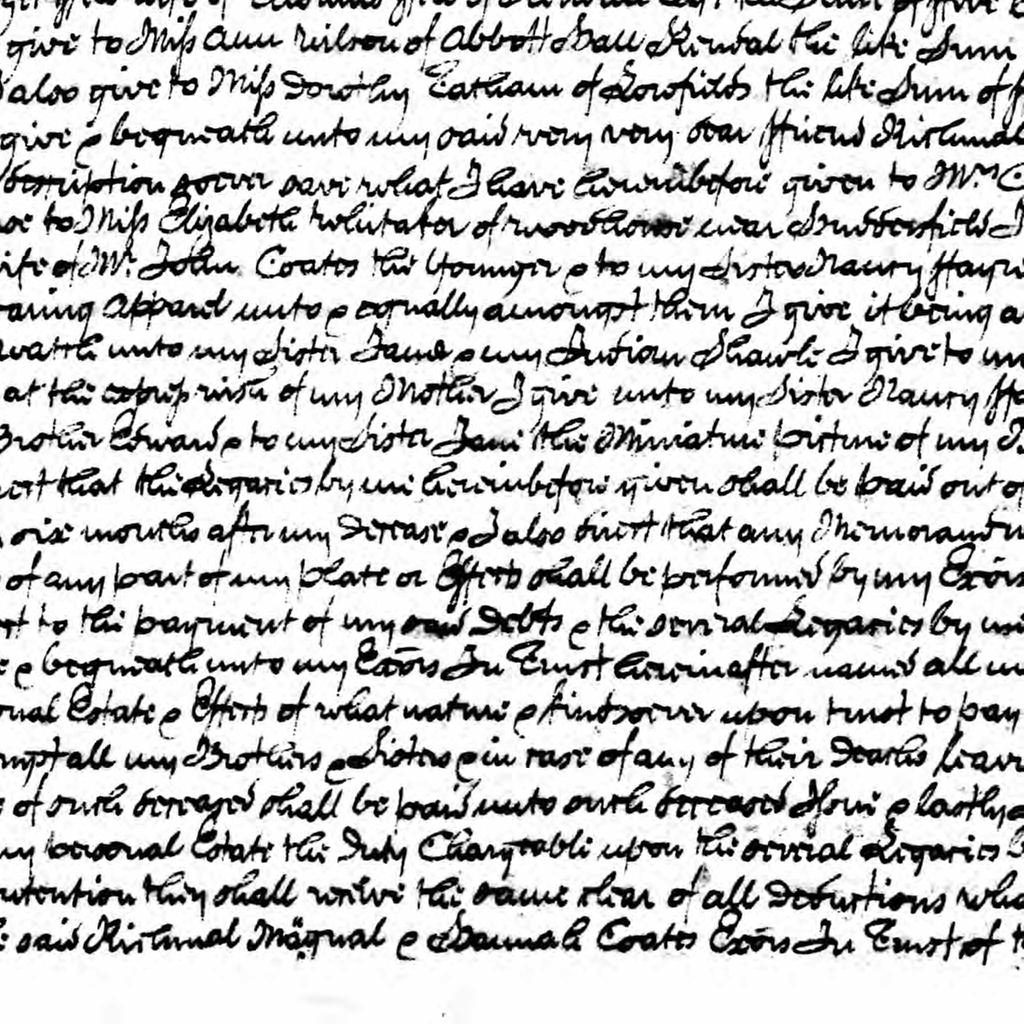 give to Miss Ann Wilson of Abbott Hall Kendal the like Sum
also give to Miss Dorothy Eatham of the like Sum of
give & bequeath unto my said very very dear ffriend Richmal
description soever save what I have hereinbefore given to Mrs. C
to Miss Elizabeth Whitaker of woodhouse near Huddersfield
ife of Mr. John Coates the Younger & to my Sister Nancy
aring Apparel unto & equally amongst them I give it being a
watch unto my Sister Jane & my Indian Shawle I give to
at the express wish of my Mother I give unto my Sister Nancy
Brother Edward & to my Sister Jane the Miniature picture of my
that the Legacies by me hereinbefore given shall be paid out of
six months after my Decease & I also direct that any Memorandu
of any part of my plate or Effects shall be performed by my Exōrs
to the payment of my said Debts & the several Legacies by me
& bequeath unto my Exōrs In Trust hereinafter named all
onal Estate & Effects of what nature & kindsoever upon trust to pay
ngst all my Brothers & Sisters & in case of any of their Deaths leav
of such deceased shall be paid unto such deceased Issue & lastly
my personal Estate the Duty Chargeable upon the several Legacies b
ntention they shall receive the same clear of all deductions wha
said Richmal Mangnall & Hannah Coates Exōrs In Trust of